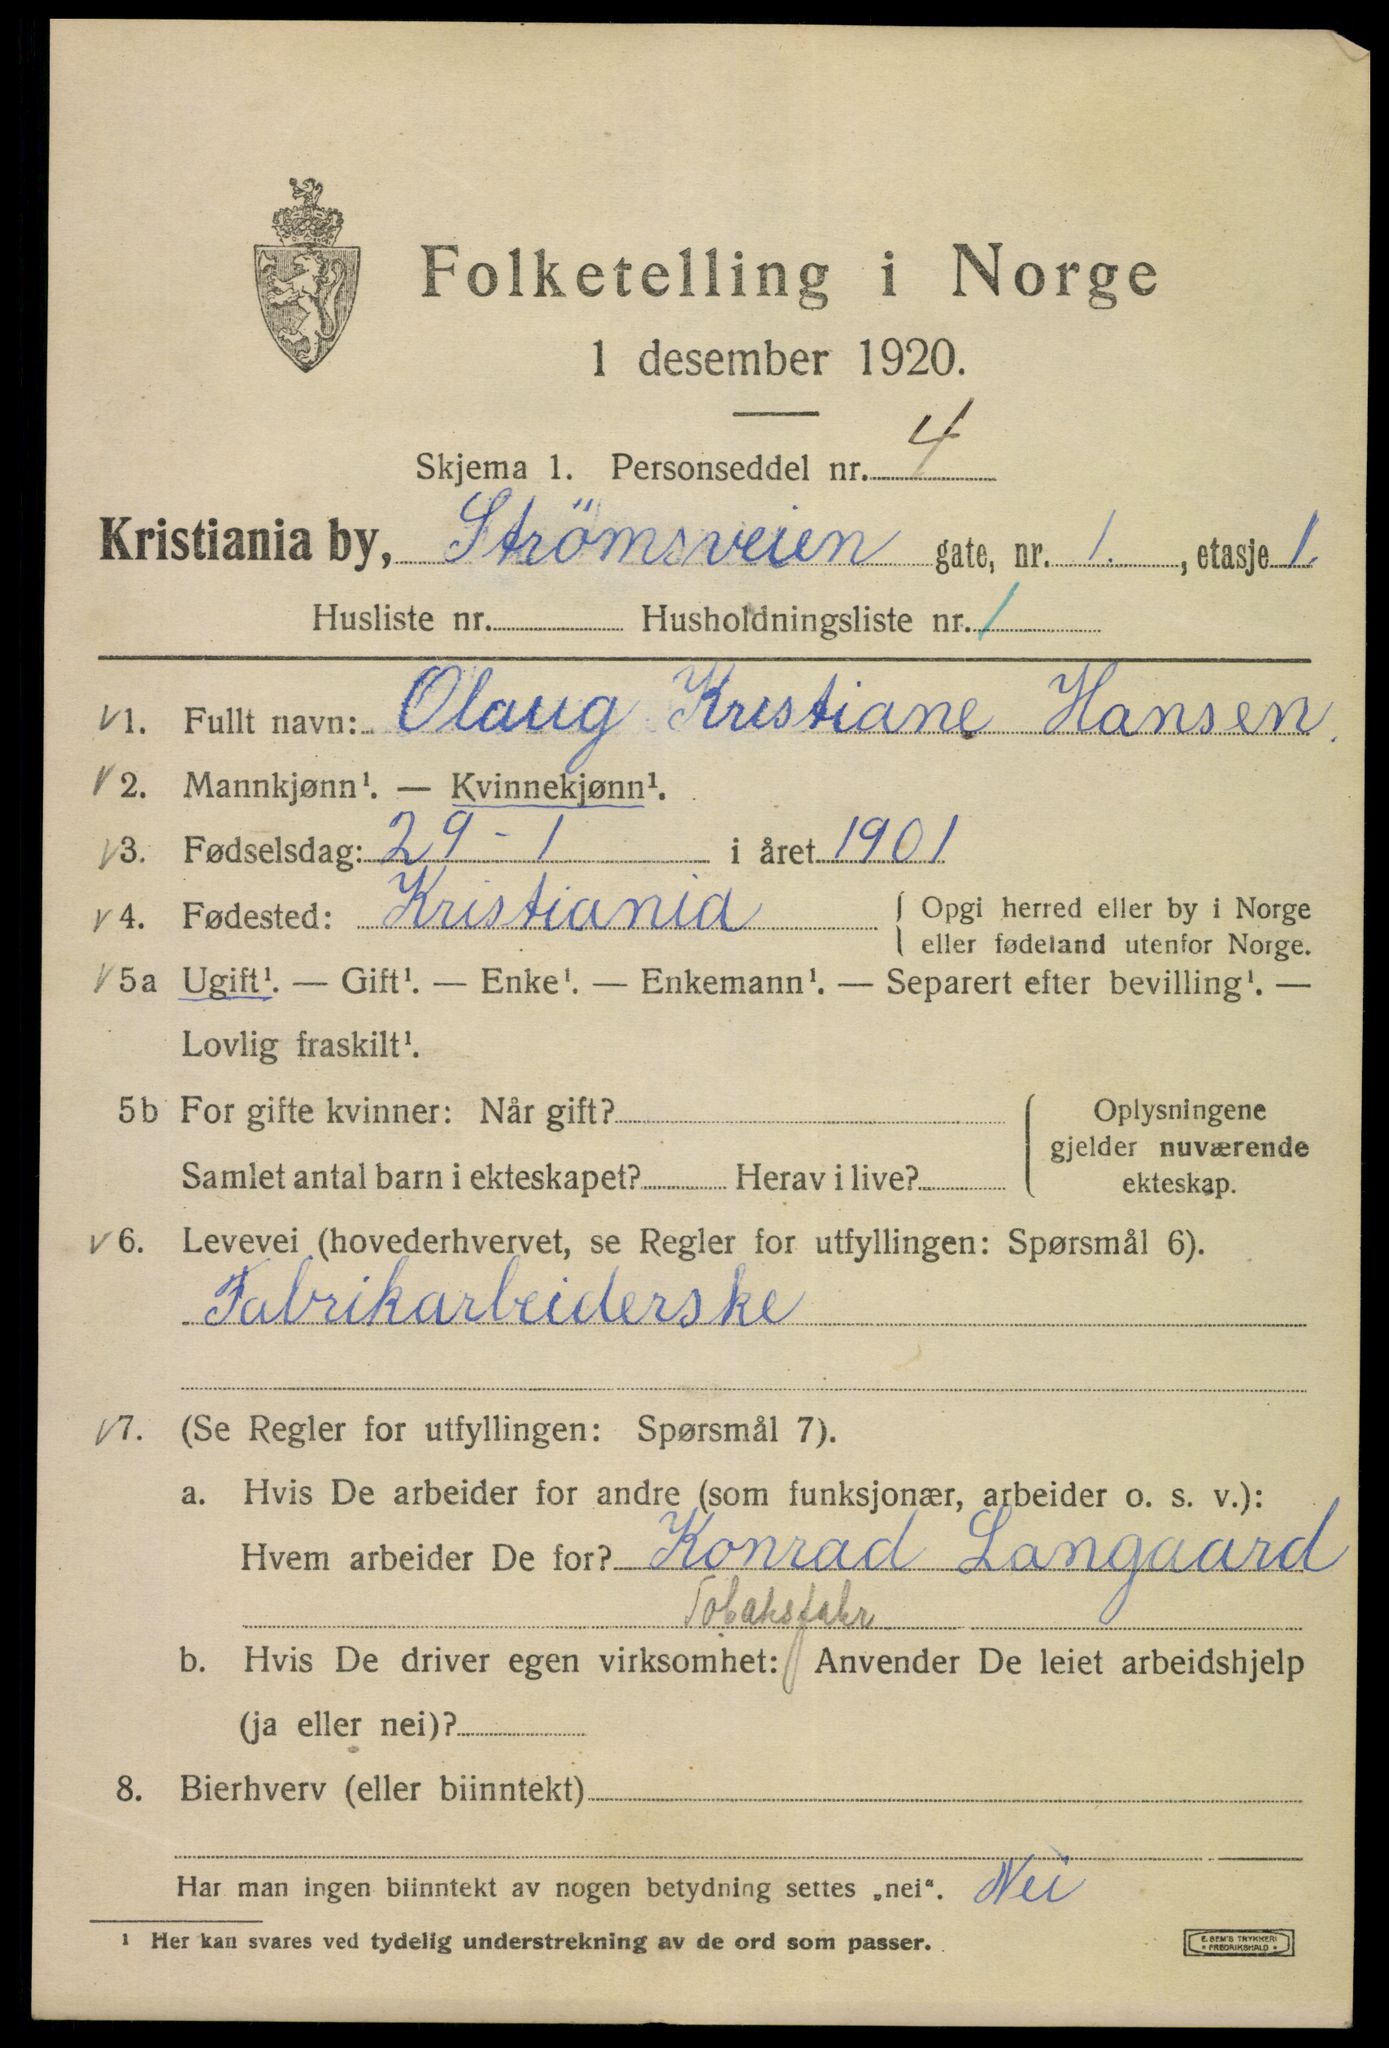 Folketelling i Norge
1 desember 1920.
Skjema 1. Personseddel nr. 4
Kristiania by, Strömsveien gate, nr. 1., etasje 1.
Husliste nr. Husholdningsliste nr. 1
v 1. Fullt navn: Olaug Kristiane Hansen.
v 2. Mannkjønn¹. — Kvinnekjønn¹.
v 3. Fødselsdag: 29 - 1 i året 1901
v 4. Fødested: Kristiania { Opgi herred eller by i Norge
eller fødeland utenfor Norge.
v 5a Ugift¹. — Gift¹. — Enke¹. — Enkemann¹. — Separert efter bevilling¹. —
Lovlig fraskilt¹.
5b For gifte kvinner: Når gift?
Samlet antal barn i ekteskapet? Herav i live?
Oplysningene
gjelder nuværende
ekteskap.
v 6. Levevei (hovederhvervet, se Regler for utfyllingen: Spørsmål 6).
Fabrikarbeiderske
v 7. (Se Regler for utfyllingen: Spørsmål 7).
a. Hvis De arbeider for andre (som funksjonær, arbeider o. s. v.):
Hvem arbeider De for? Konrad Langaard
Tobaksfabr
b. Hvis De driver egen virksomhet: Anvender De leiet arbeidshjelp
(ja eller nei)?
8. Bierhverv (eller biinntekt)
Har man ingen biinntekt av nogen betydning settes „nei“. Nei
¹ Her kan svares ved tydelig understrekning av de ord som passer.
E. SEM'S TRYKKERI
* FREDRIKSHALD *